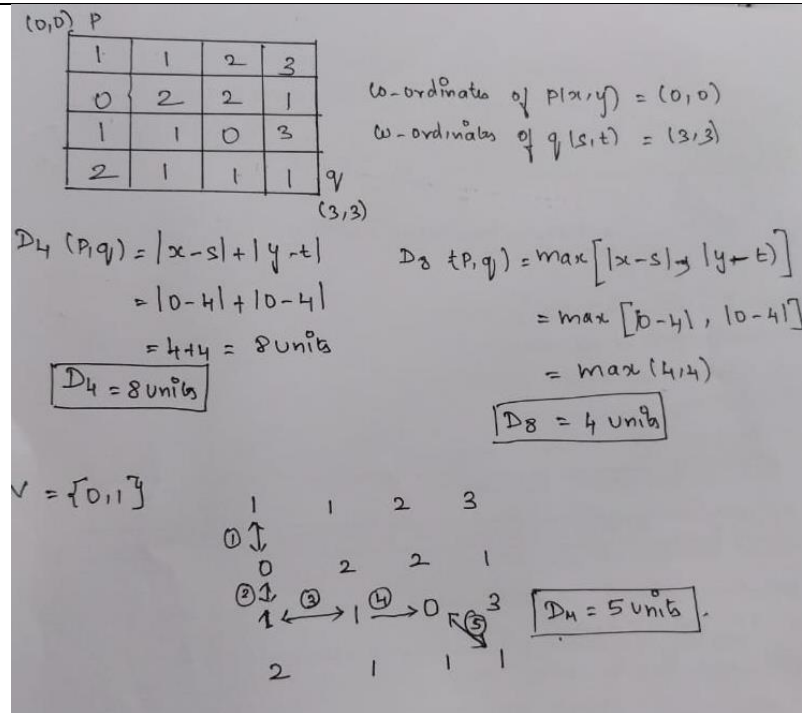 (0,0) P
1 1 2 3
0 2 2 1
1 1 0 3
2 1 1 1 q
(3,3)
Co-ordinates of P(x,y) = (0,0)
Co-ordinates of q(s,t) = (3,3)
D4 (P,q) = |x-s|+|y-t|
= |0-4|+|0-4|
= 4+4 = 8 units
D4 = 8 units
D8 (P,q) = max[|x-s|, |y-t|]
= max [|0-4|, |0-4|]
= max (4,4)
D8 = 4 units
V = {0,1}
1 1 2 3
①
0 2 2 1
② ③ ④
1 1 0 3
⑤
2 1 1 1
Dm = 5 units.